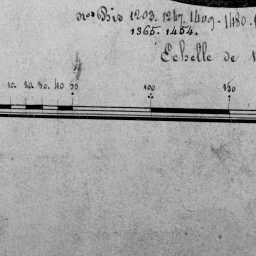 nos Bis 1203. 1247. 1409. 1480.
1365. 1454.
Echelle de
10. 20. 30. 40 50 100 150